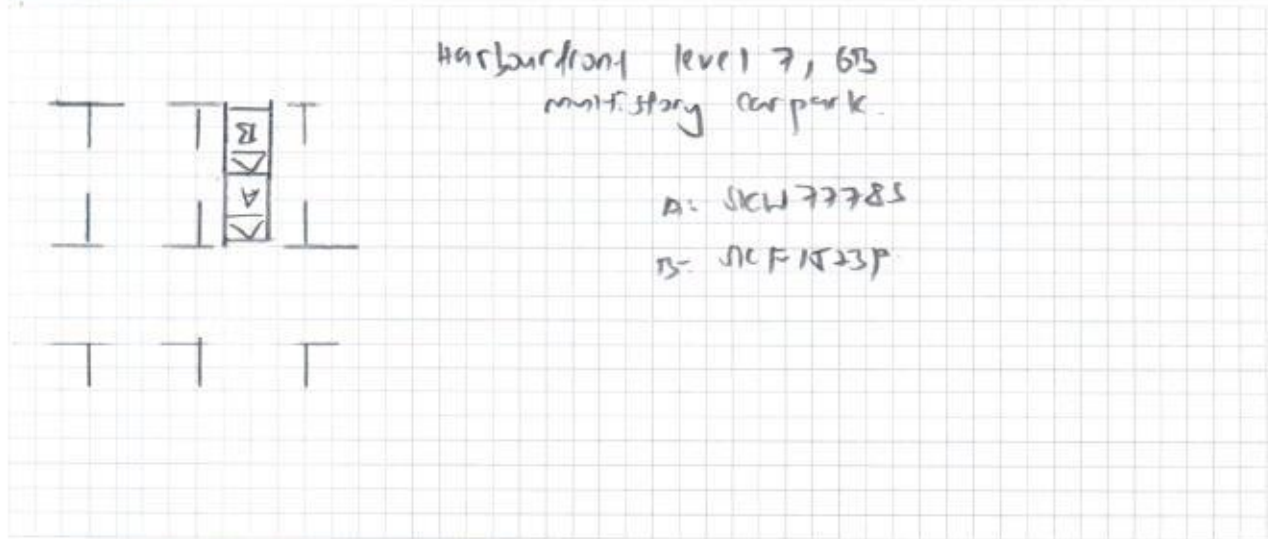 Harbourfront level 7, 6B
multistory carpark.
B
A
A: SKW7778S
B: SKF1523P